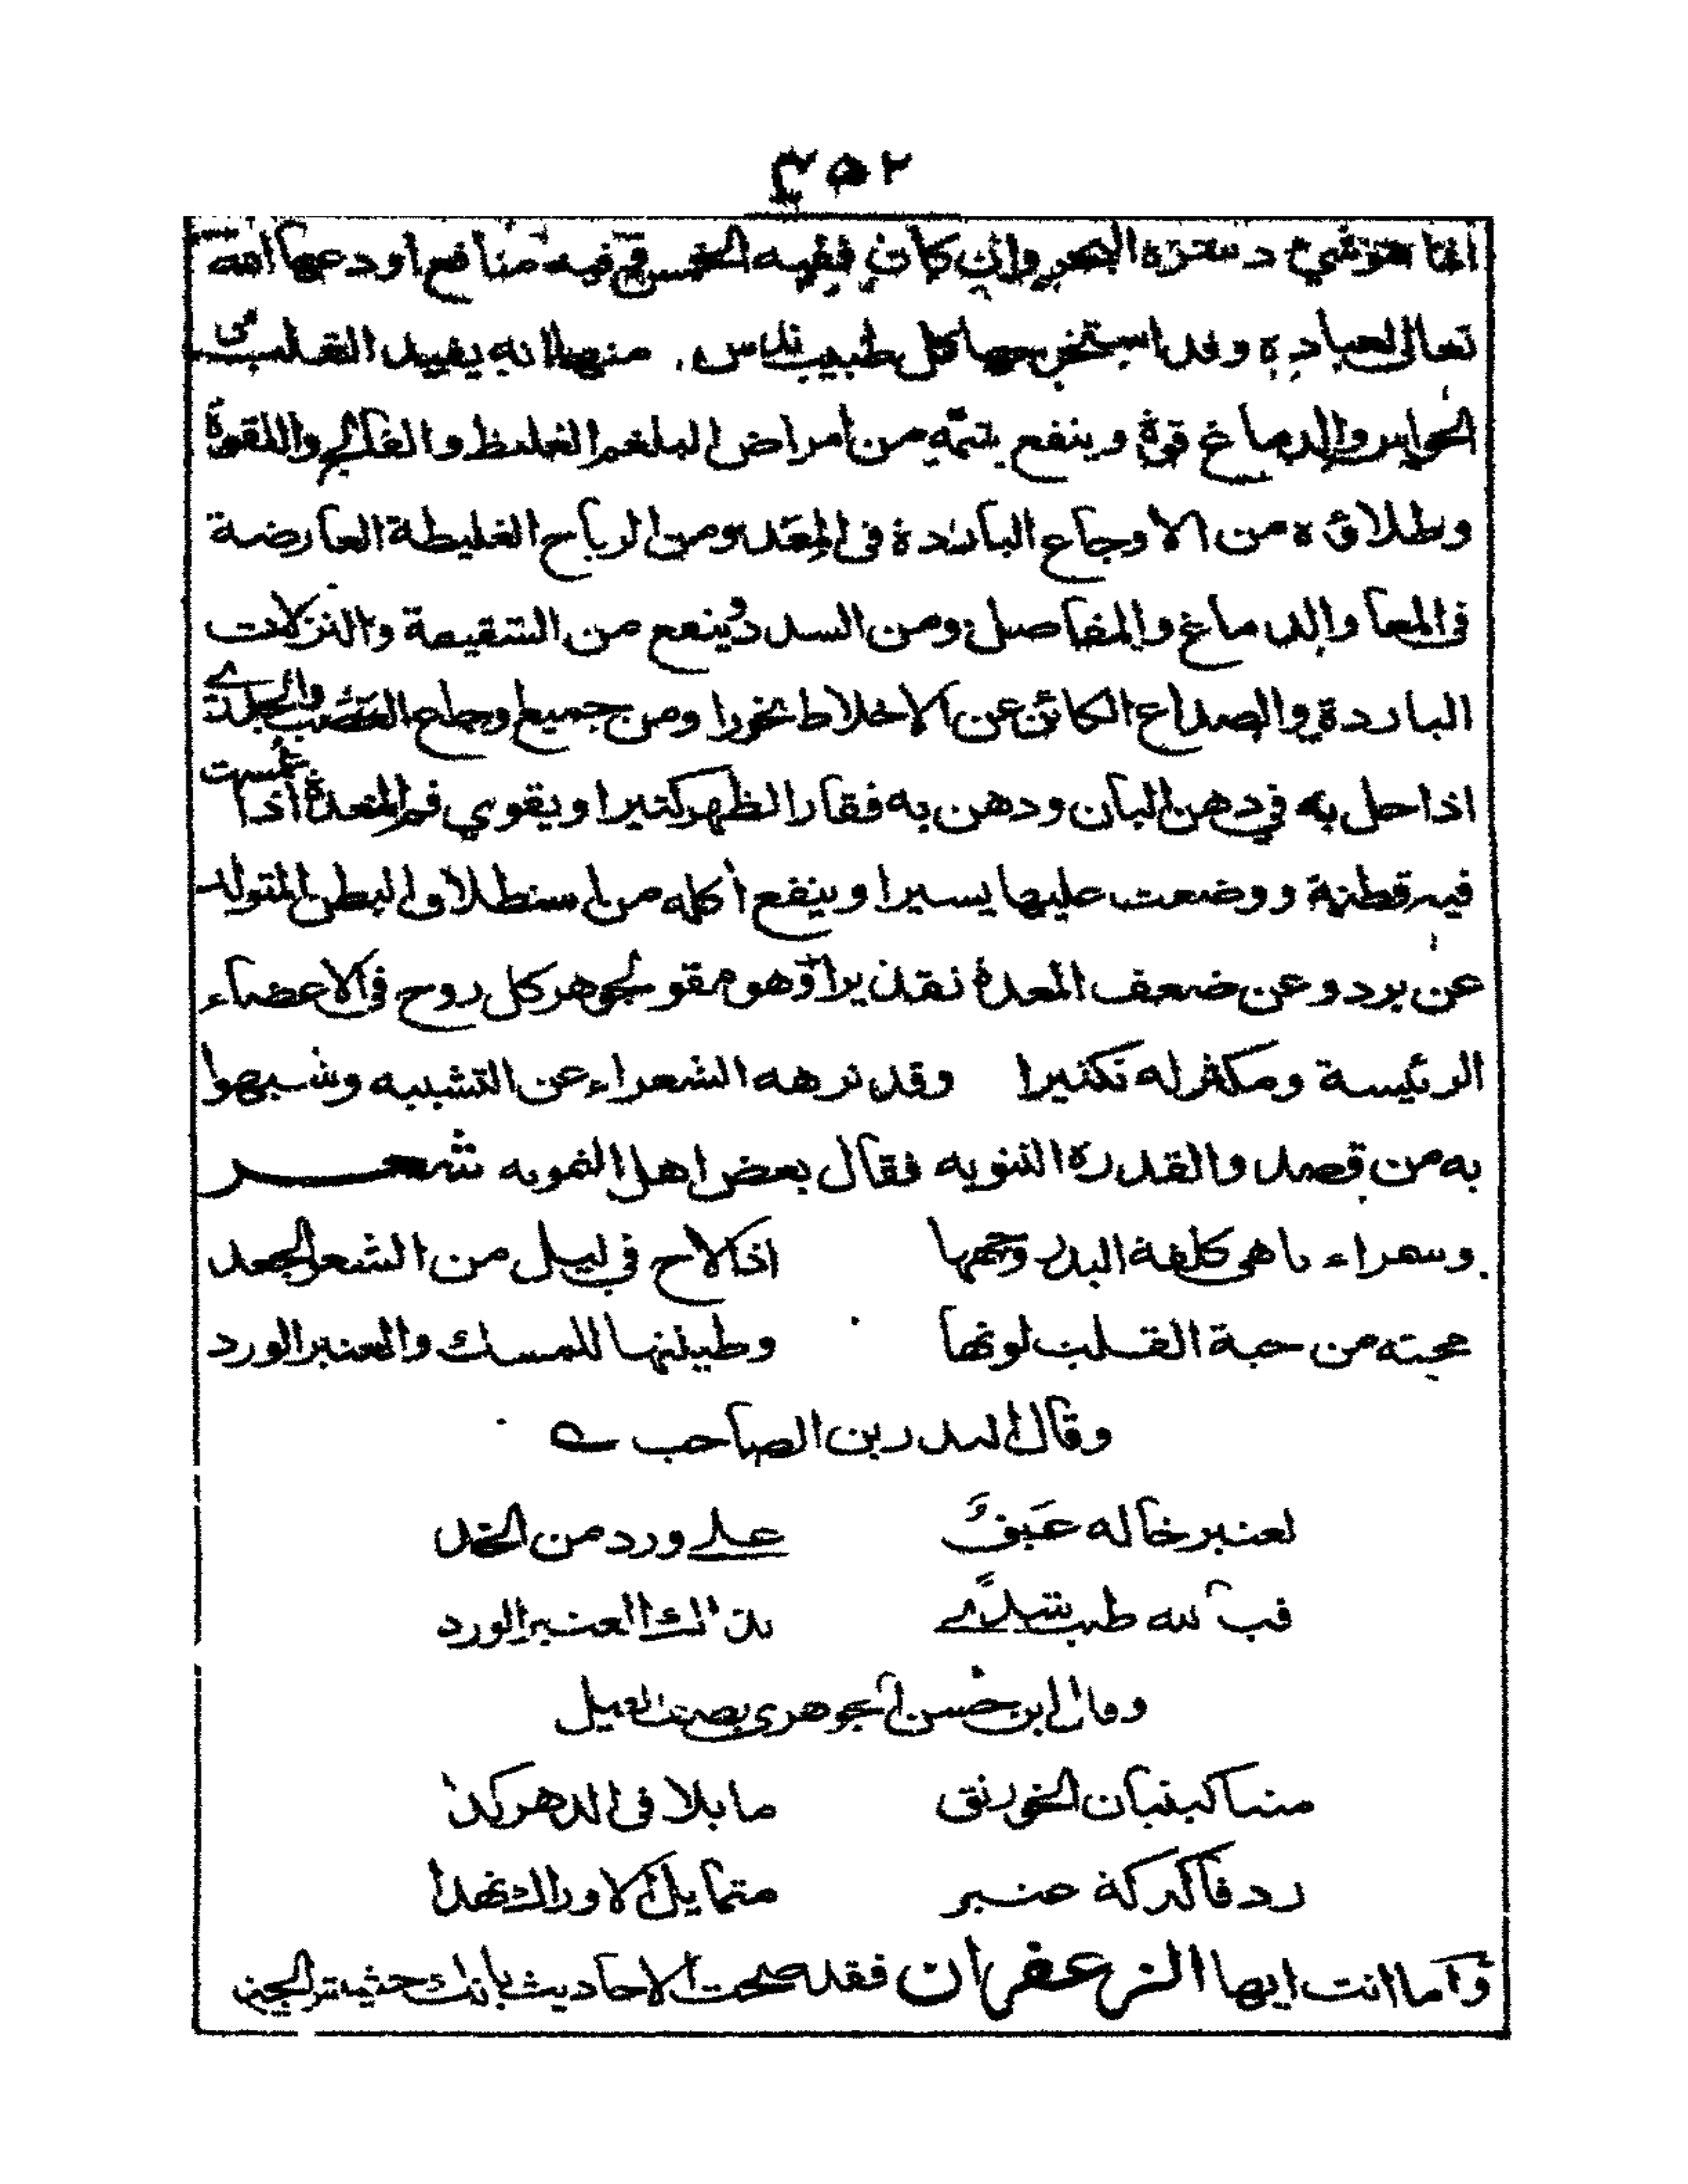 ٣٥٢
انما هو شيء دسره البحر وان كان ففيه الخمس وفيه منافع اودعها الله
تعالى لعباده وقد استخرجها كل طبيب منها انه يفيد القلب
الحواس والدماغ قوة وينفع شمه من امراض البلغم الغليظ والفالج واللقوة
وطلاؤه من الاوجاع الباردة فى المعد ومن الرياح الغليظة العارضة
فى المعا والدماغ والمفاصل ومن السدد وينفع من الشقيقة والنزلات
الباردة والصداع الكائن عن الاخلاط بخورا ومن جميع اوجاع العصب
اذا حل به في دهن البان ودهن به فقار الظهر كثيرا ويقوي فم المعدة اذا غمست
فيه قطنة ووضعت عليها يسيرا وينفع اكله من استطلاق البطن المتولد
عن برد وعن ضعف المعدة وهو مقو لجوهر كل روح فى الاعضاء
الرئيسة ومكثر له تكثيرا وقد نزهه الشعراء عن التشبيه وشبهوا
به من قصد والقدره التنويه فقال بعض اهل شعر
وسمراء باهى كلفة البدر وجهها اذا لاح في ليل من الشعر الجعد
محبته من حبة القلب لونها وطينتها للمسك والعنبر الورد
وقال البدر بن الصاحب
لعنبر خاله عبق على ورد من الخد
بذاك العنبر الورد
وقال ابن الجوهرى يصف الفيل
متنا كبنيان الخورنق ما يلاقى الدهر كدا
ردفا كدكة عنبر متمايل الاوراك نهدا
واما انت ايها الزعفران فقد صحت الاحاديث بانك